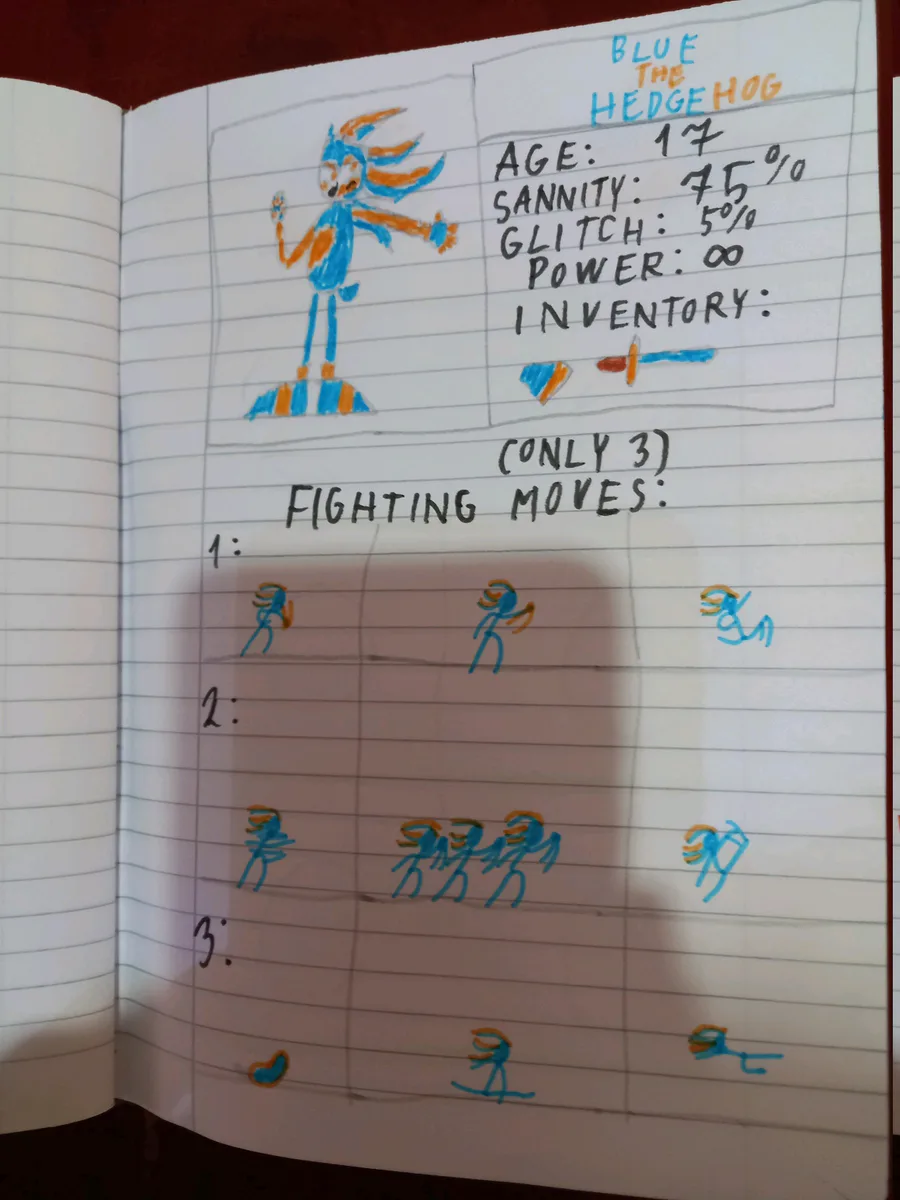 BLUE
THE
HEDGEHOG
AGE: 17
SANNITY: 75%
GLITCH: 5%
POWER: ∞
INVENTORY:
(ONLY 3)
FIGHTING MOVES:
1:
2:
3: